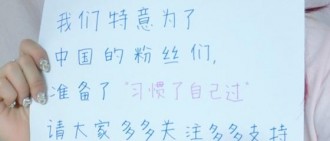 我们特意为了
中国的粉丝们,
准备了“习惯了自己过”
请大家多多关注多多支持